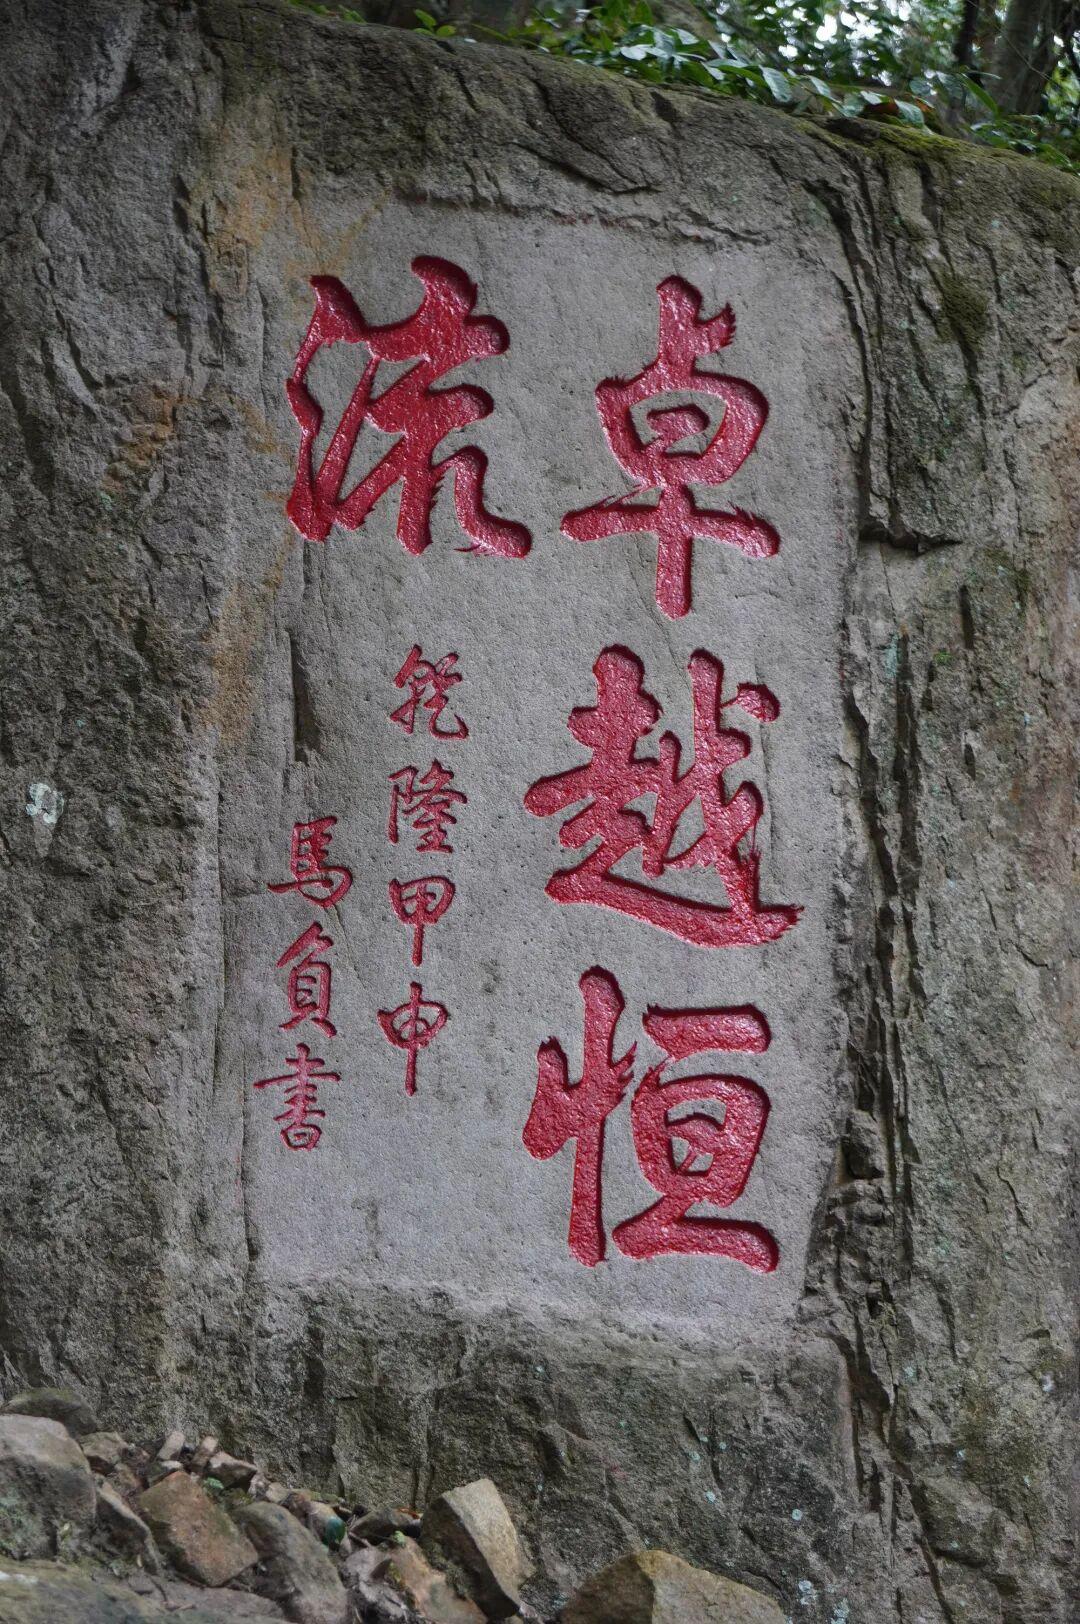 卓越恒
流
乾隆甲申
馬負書